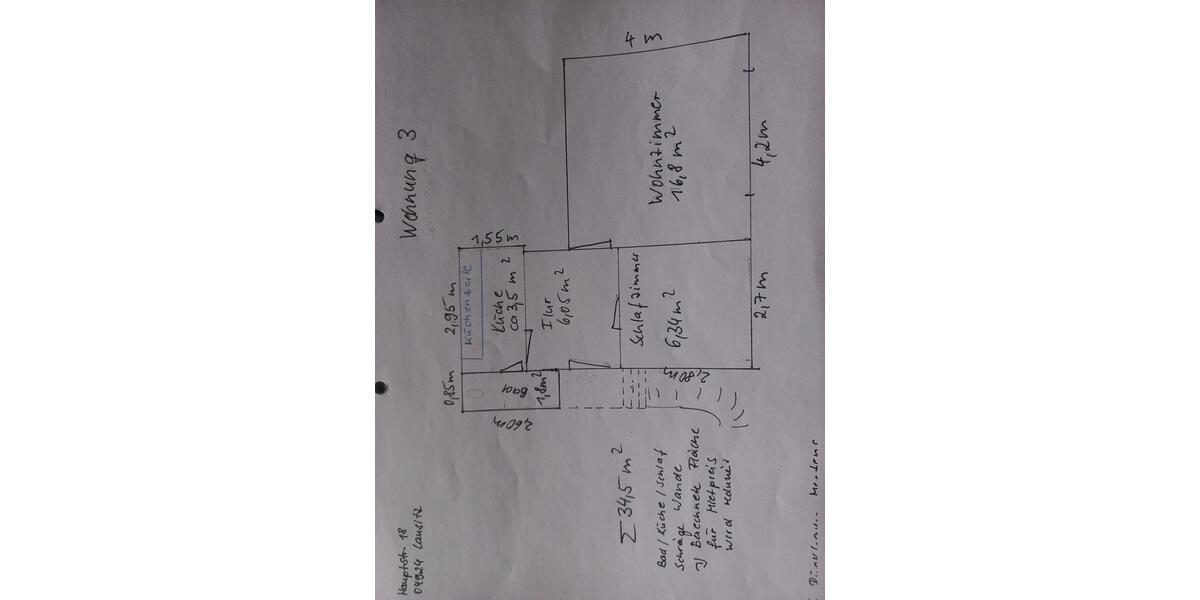 Hauptstr. 18
04924 Lausitz
Wohnung 3
0,85m
2,95 m
1,55 m
Küchenzeile
Küche
ca 3,5 m²
Bad
1,8m²
2,60m
Flur
6,05 m²
Schlafzimmer
6,34 m²
2,80m
2,7m
Wohnzimmer
16,8 m²
4 m
4,2m
∑ 34,5 m²
Bad/Küche/Schlaf
schräge Wände
Berechnete Fläche
für Mietpreis
wird